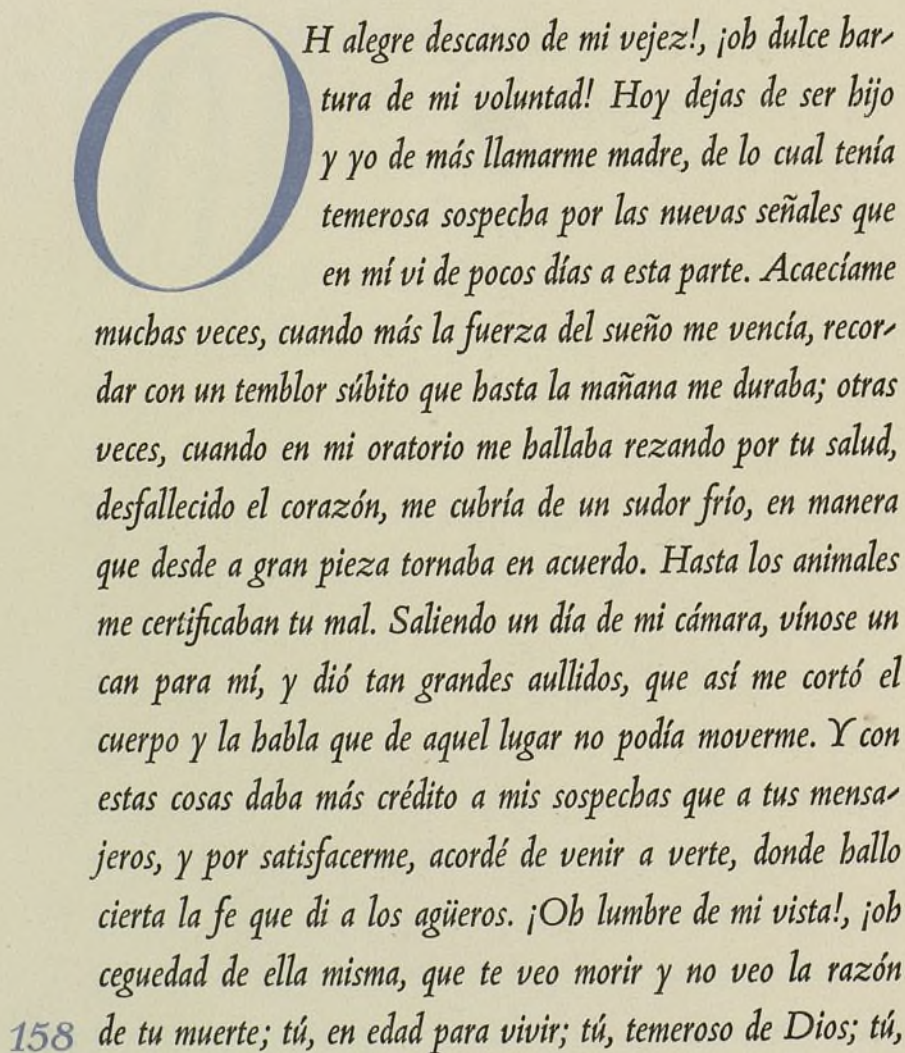 OH alegre descanso de mi vejez!, ¡oh dulce har-
tura de mi voluntad! Hoy dejas de ser hijo
y yo de más llamarme madre, de lo cual tenía
temerosa sospecha por las nuevas señales que
en mí vi de pocos días a esta parte. Acaecíame
muchas veces, cuando más la fuerza del sueño me vencía, recor-
dar con un temblor súbito que hasta la mañana me duraba; otras
veces, cuando en mi oratorio me hallaba rezando por tu salud,
desfallecido el corazón, me cubría de un sudor frío, en manera
que desde a gran pieza tornaba en acuerdo. Hasta los animales
me certificaban tu mal. Saliendo un día de mi cámara, vínose un
can para mí, y dió tan grandes aullidos, que así me cortó el
cuerpo y la habla que de aquel lugar no podía moverme. Y con
estas cosas daba más crédito a mis sospechas que a tus mensa-
jeros, y por satisfacerme, acordé de venir a verte, donde hallo
cierta la fe que di a los agüeros. ¡Oh lumbre de mi vista!, ¡oh
ceguedad de ella misma, que te veo morir y no veo la razón
158 de tu muerte; tú, en edad para vivir; tú, temeroso de Dios; tú,